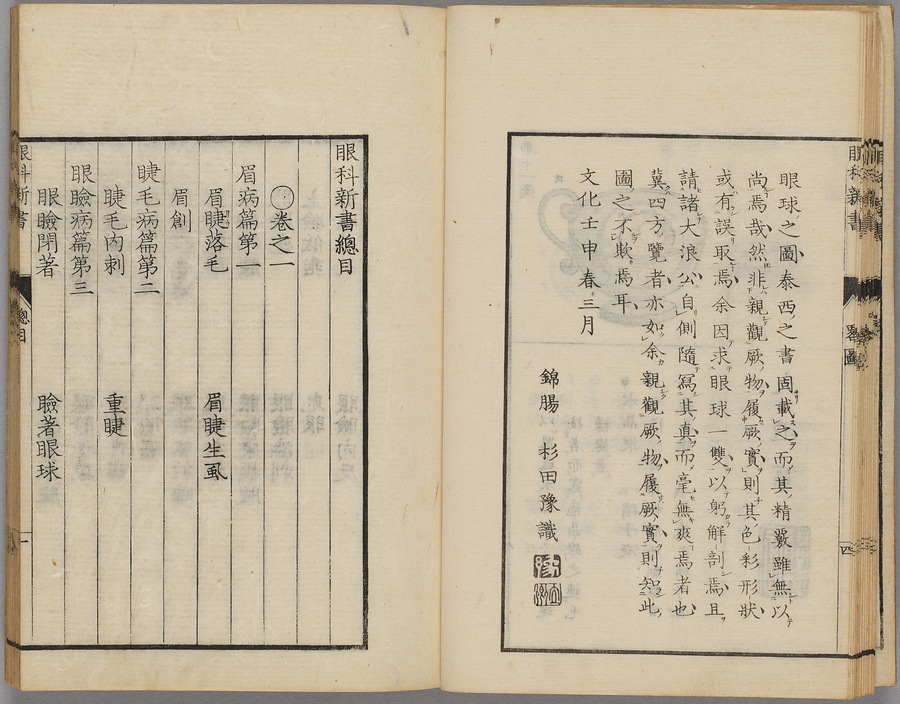 眼科新書
眼球之圖泰西之書固載之而其精覈雖無以
尚焉哉然非親觀厥物履厥實則其色彩形狀
或有誤取焉余因求眼球一雙以躬解剖焉且
請諸大浪公自側隨寫其真而毫無爽焉者也
冀四方覽者亦如余親觀厥物履厥實則知此
圖之不欺焉耳
文化壬申春三月
錦腸 杉田豫識
眼科新書總目
○卷之一
眉病篇第一
眉睫落毛 眉睫生虱
眉創
睫毛病篇第二
睫毛內刺 重睫
眼瞼病篇第三
眼瞼閉著 瞼著眼球
眼科新書 總目 一